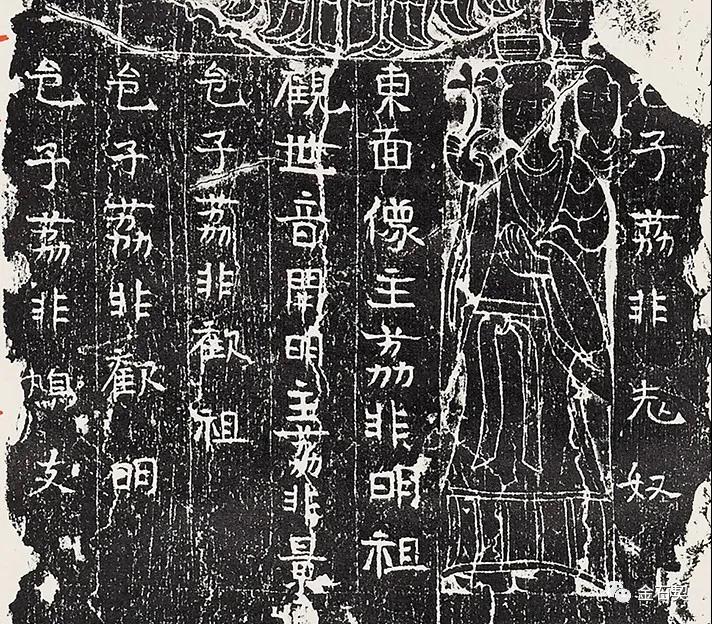 子荔非老奴
東面像主荔非明祖
觀世音開明主荔非景
邑子荔非歡祖
邑子荔非歡明
邑子荔非鳩支
金石契